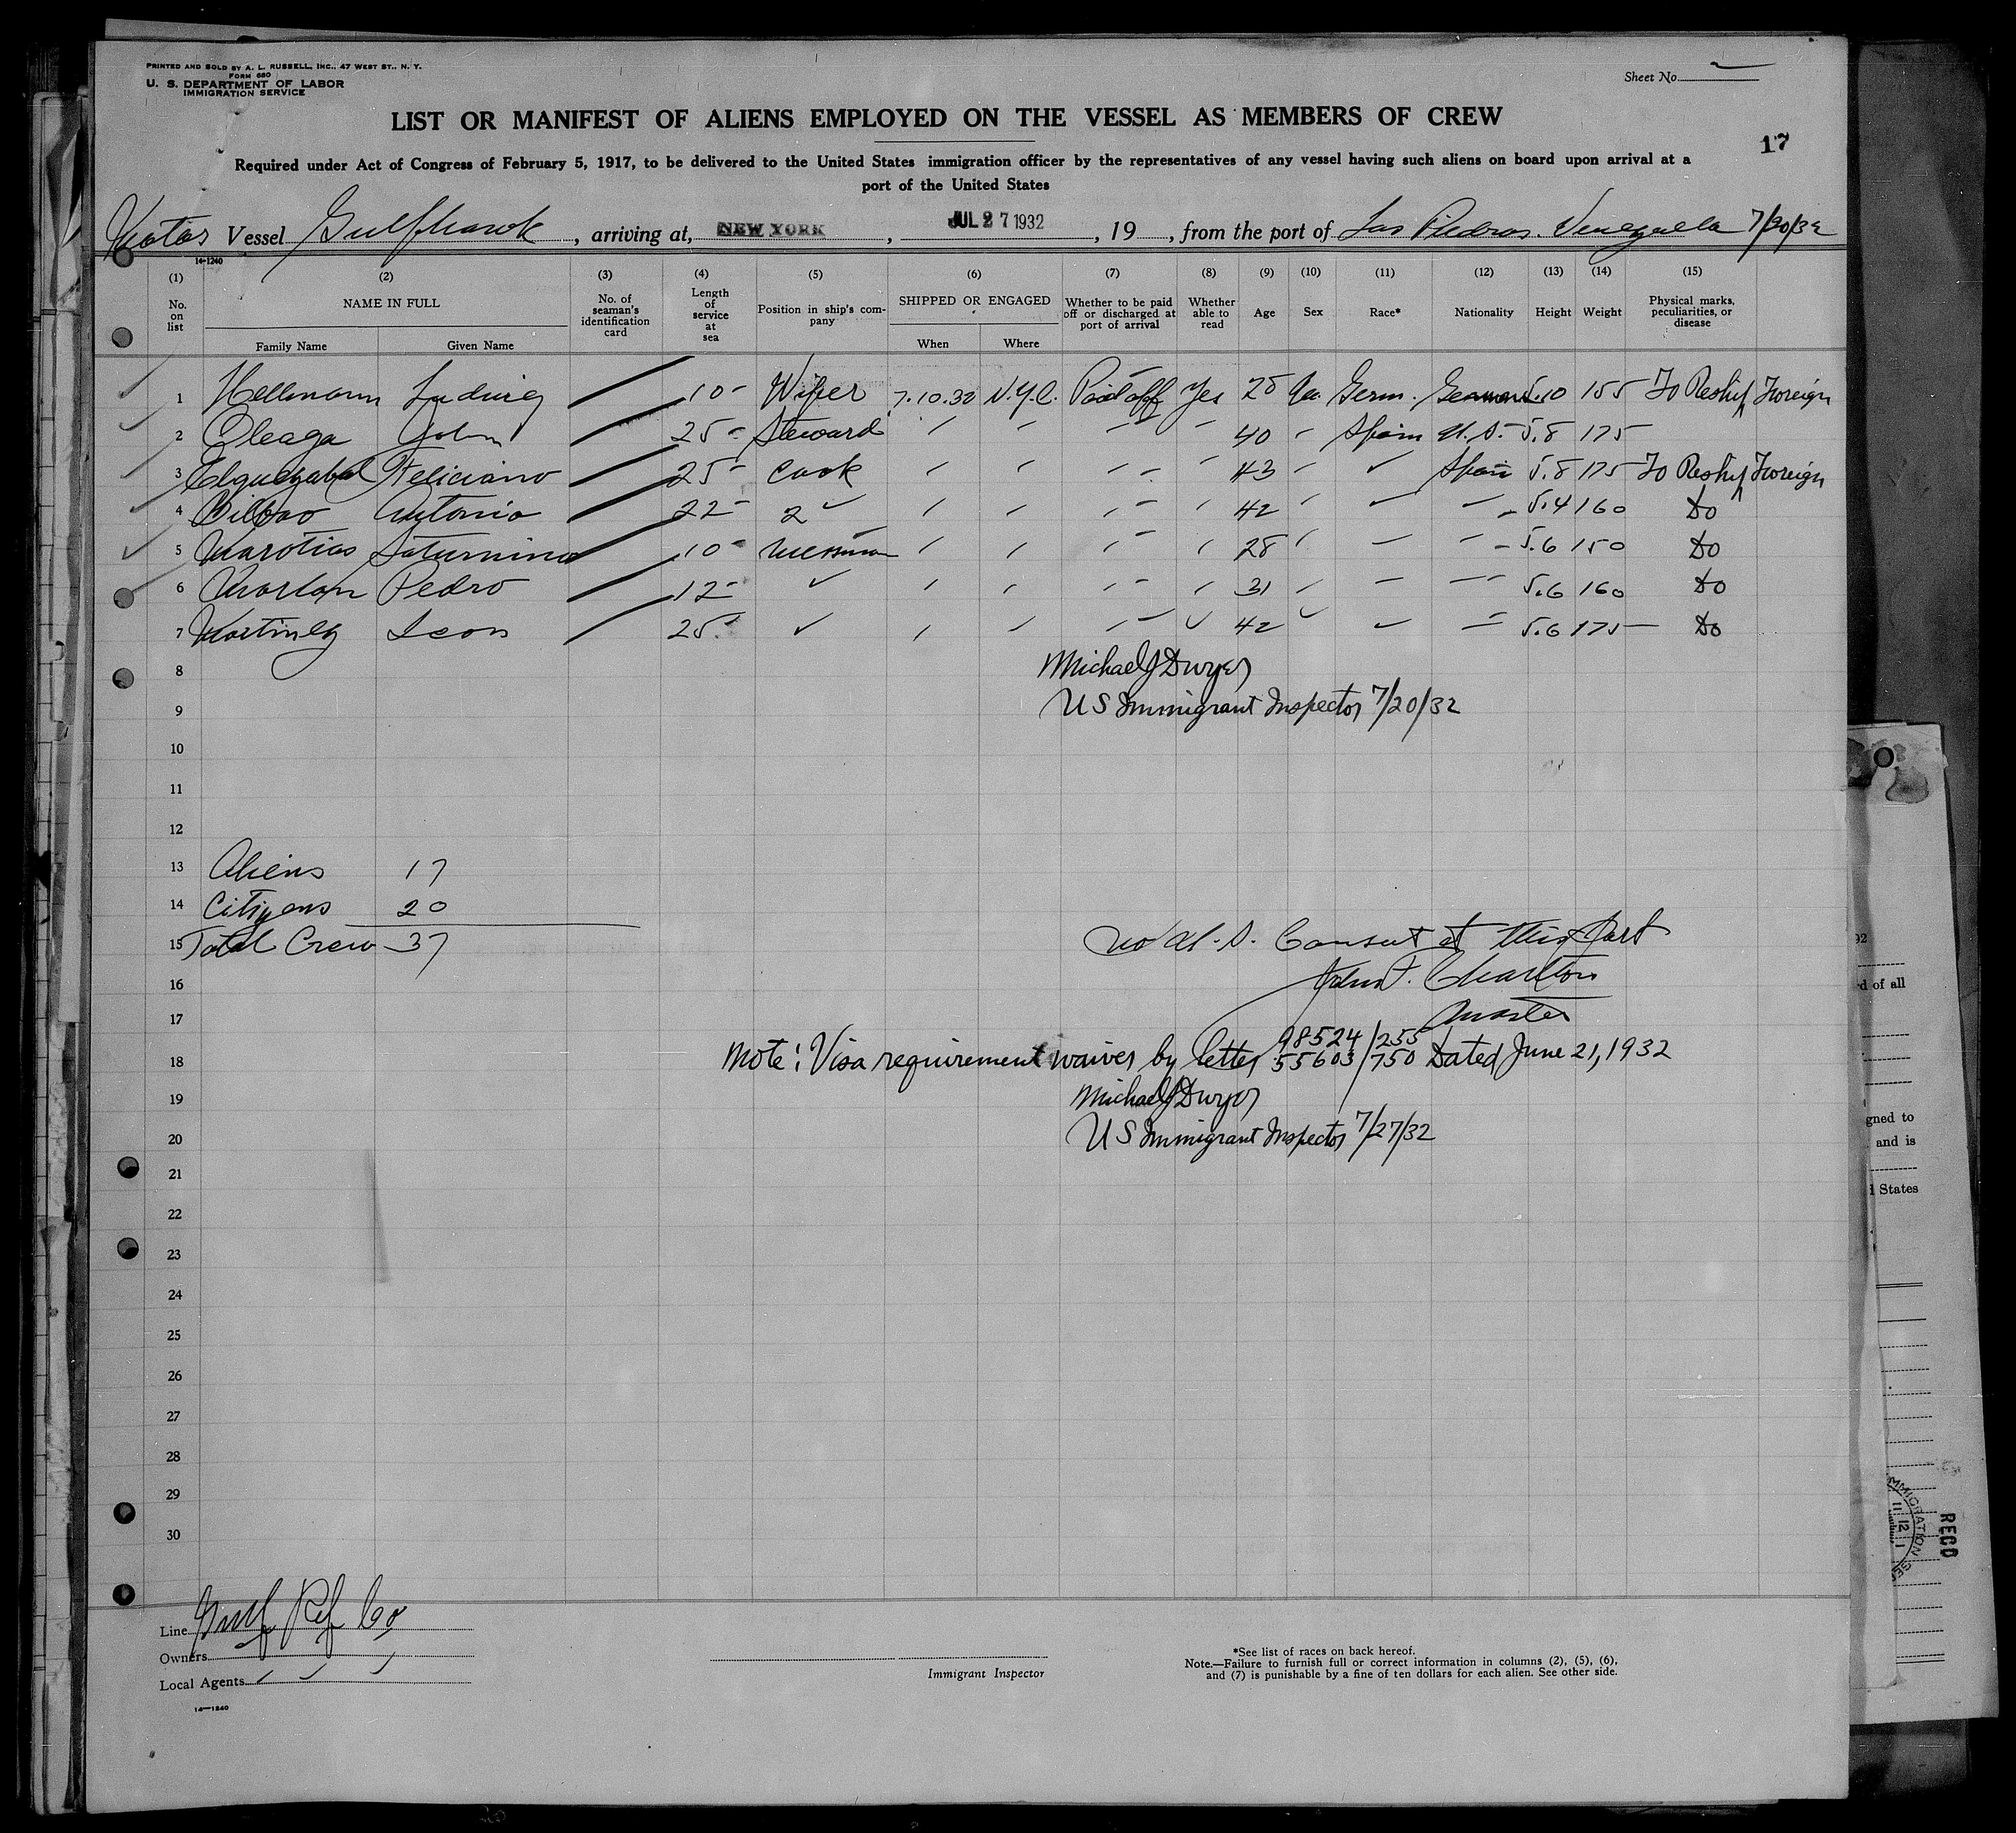 PRINTED AND SOLD BY A. L. RUSSELL, INC., 47 WEST ST., N. Y.
FORM 680
U. S. DEPARTMENT OF LABOR
IMMIGRATION SERVICE
Sheet No. 2
LIST OR MANIFEST OF ALIENS EMPLOYED ON THE VESSEL AS MEMBERS OF CREW
17
Required under Act of Congress of February 5, 1917, to be delivered to the United States immigration officer by the representatives of any vessel having such aliens on board upon arrival at a
port of the United States
Vessel Gulfhawk, arriving at, NEW YORK, JUL 27 1932, 19 , from the port of Las Piedras. Venezuela 7/20/32
14-1240
(1) (2) (3) (4) (5) (6) (7) (8) (9) (10) (11) (12) (13) (14) (15)
No. on list NAME IN FULL Family Name Given Name No. of seaman's identification card Length of service at sea Position in ship's company SHIPPED OR ENGAGED When Where Whether to be paid off or discharged at port of arrival Whether able to read Age Sex Race* Nationality Height Weight Physical marks, peculiarities, or disease
1 Hellmann Ludwig 10 - Wiper 7.10.32 N.Y.C. Paid off Yes 25 M. Germ. German 5.10 155 To Reship Foreign
2 Oleaga John 25 - Steward " " " " 40 " Spain U.S. - 5.8 175
3 Elguezabal Feliciano 25 - Cook " " " " 43 " ✓ Spain 5.8 175 To Reship Foreign
4 Bilbao Antonio 22 - 2 ✓ " " " " 42 " " " 5.4 160 Do
5 Saturnino 10 - Messman " " " " 28 " " " 5.6 150 Do
6 Pedro 12 - ✓ " " " " 31 " " " 5.6 160 Do
7 Martinez Leon 25 - ✓ " " " ✓ 42 ✓ ✓ " 5.6 175 Do
8 Michael J Dwyer
9 US Immigrant Inspector 7/20/32
10
11
12
13 Aliens 17
14 Citizens 20
15 Total Crew - 37
No U.S. Consul at this Port
16 John F. Charlton
17 Master
98524/255
18 Note: Visa requirement waiver by letter 55603/750 Dated June 21, 1932
19 Michael J Dwyer
20 US Immigrant Inspector 7/27/32
21
22
23
24
25
26
27
28
29
30
Line Gulf Ref Co
Owners
Local Agents ✓ ✓ ✓
Immigrant Inspector
*See list of races on back hereof.
Note.—Failure to furnish full or correct information in columns (2), (5), (6),
and (7) is punishable by a fine of ten dollars for each alien. See other side.
14—1240
92
d of all
gned to
and is
States
RECD